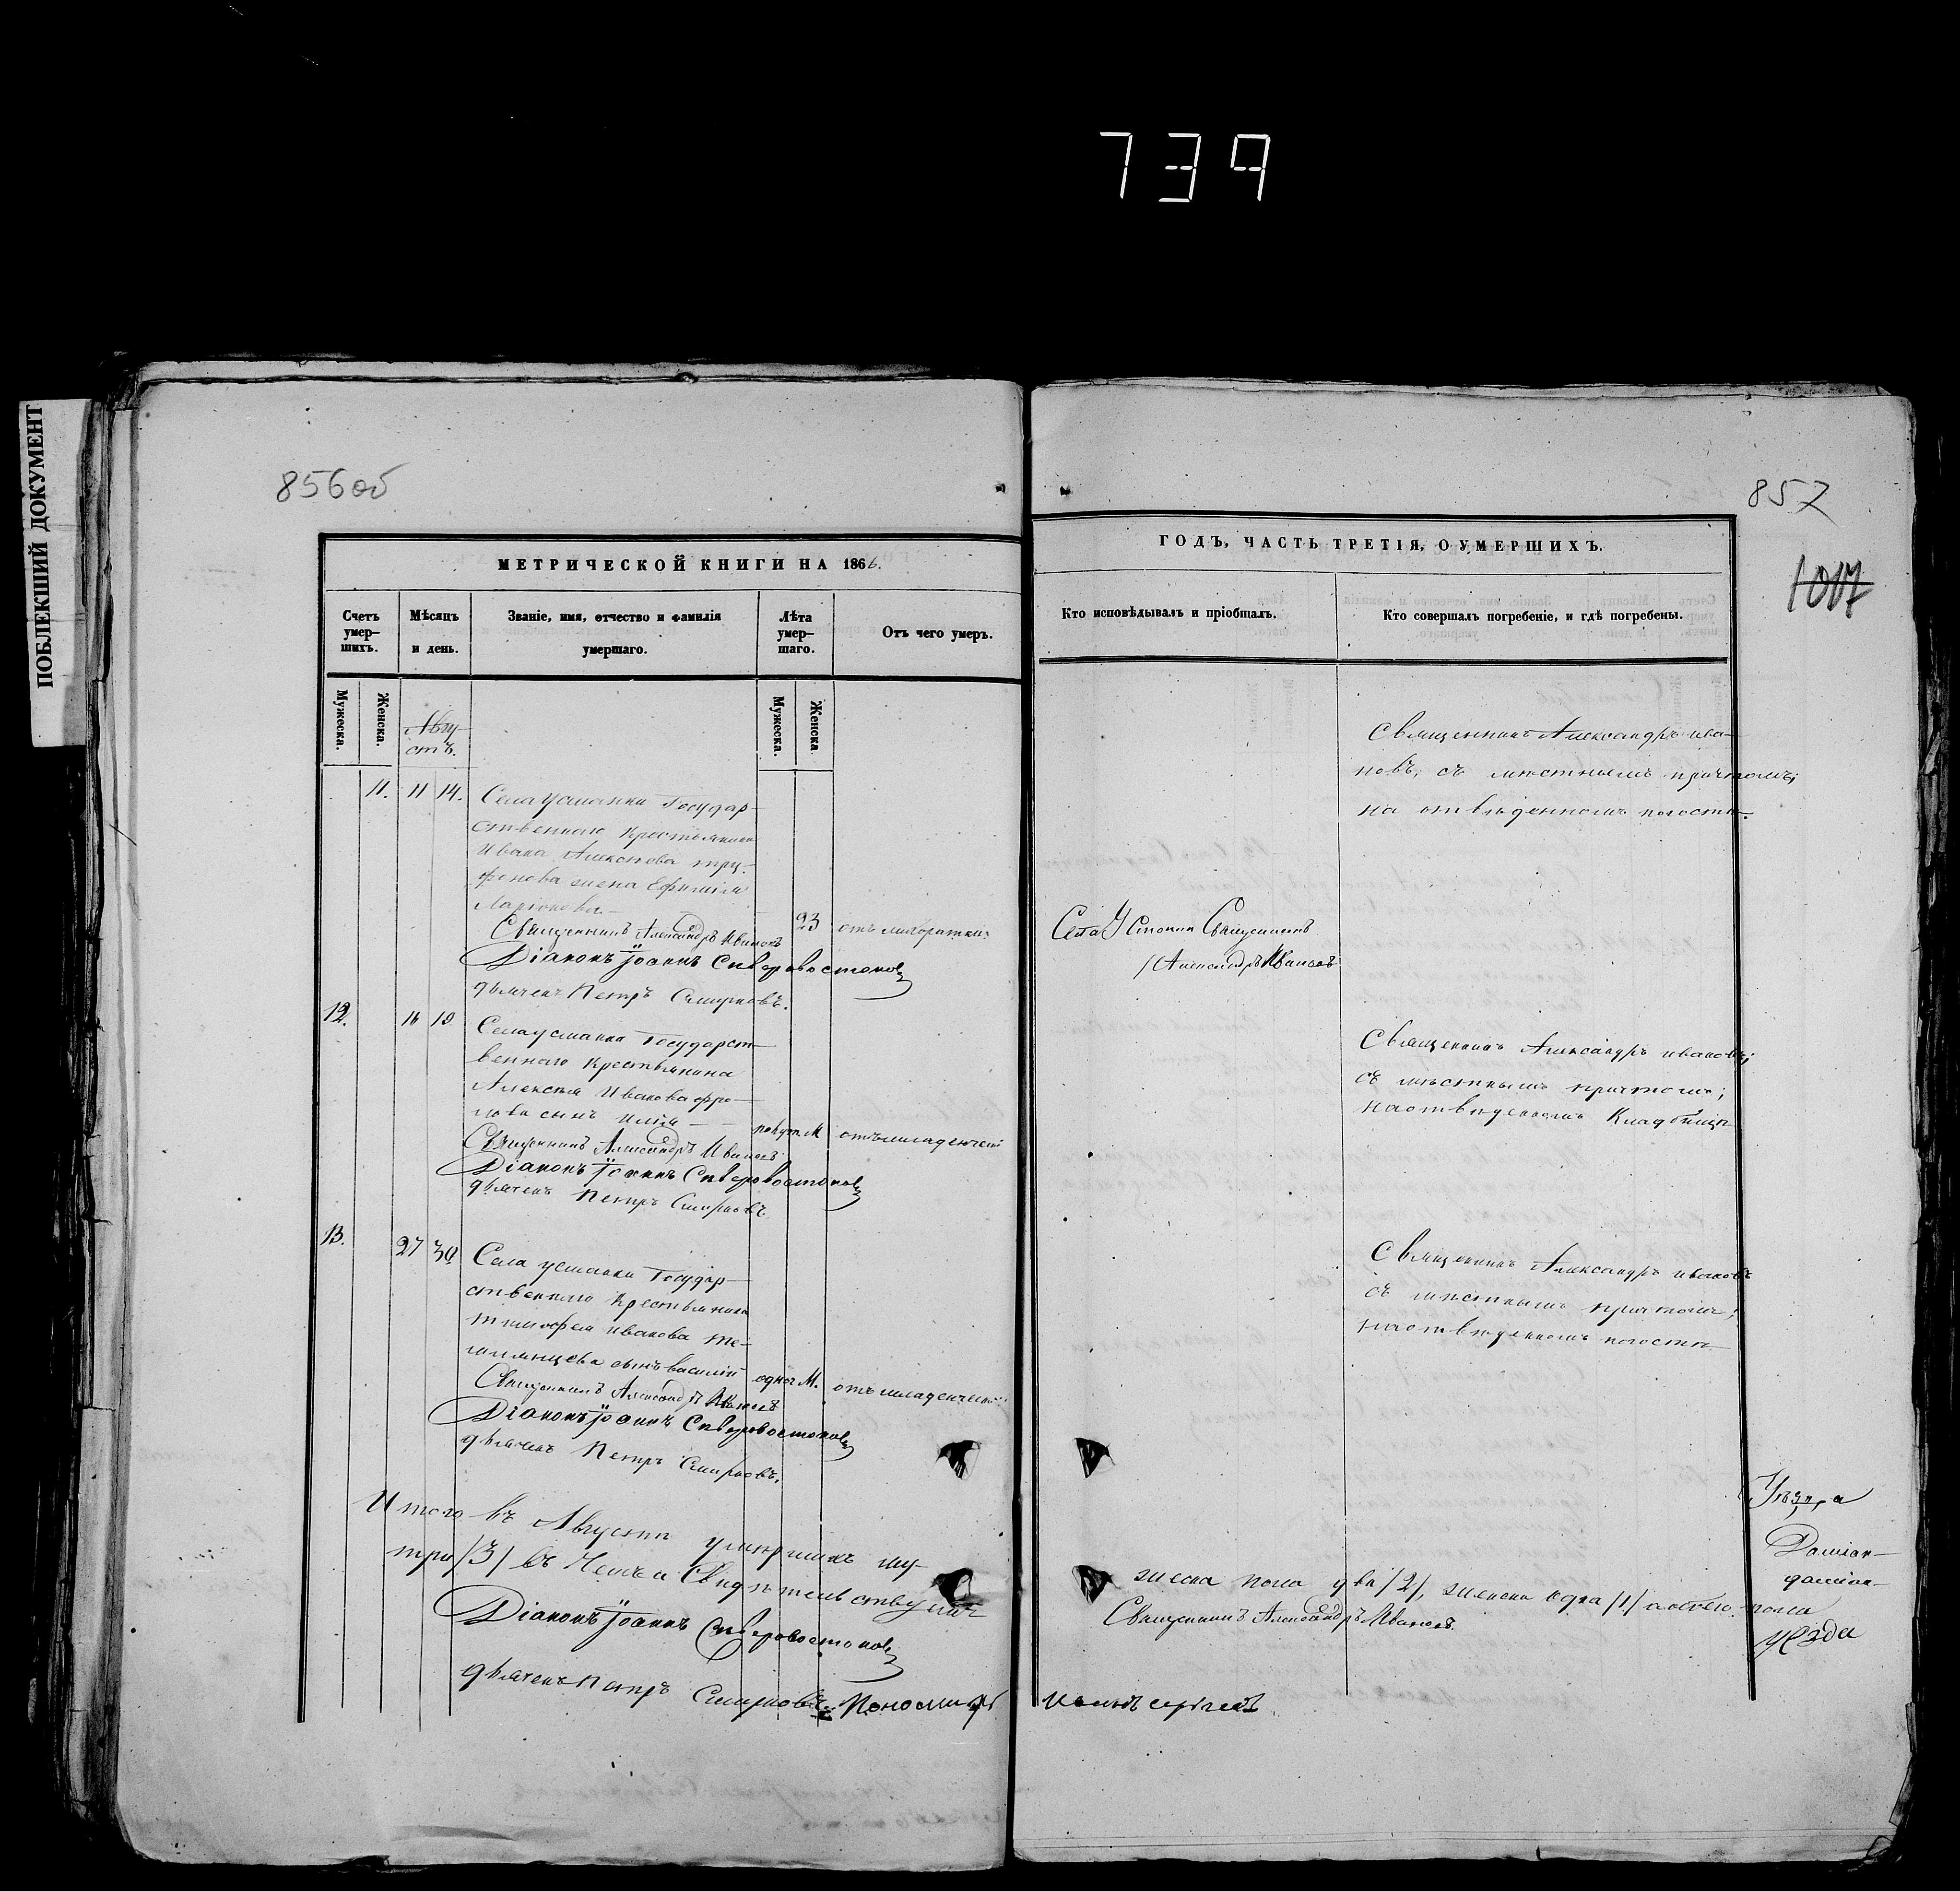 739
ПОБЛЕКШИЙ ДОКУМЕНТ
856об
МЕТРИЧЕСКОЙ КНИГИ НА 1866.
Счетъ умер-шихъ.
Мѣсяцъ и день.
Званіе, имя, отчество и фамилія умершаго.
Лѣта умер-шаго.
Отъ чего умеръ.
Мужеска.
Женска.
Мужеска.
Женска.
Авгу-
стъ.
11. 11 14. Села Усманки Государ-
ственнаго крестьянина
Ивана Алексѣева
жена Ефимія
Ларіонова 23
Священникъ Александръ Ивановъ
Діаконъ Іоаннъ Сѣверовостоковъ
дьячекъ Петръ Смирновъ.
12. 16 19 Села Усманки Государст-
веннаго крестьянина
Алексѣя Иванова Фро-
лова сынъ Илія М отъ младенческ
Священникъ Александръ Ивановъ
Діаконъ Іоаннъ Сѣверовостоковъ
дьячекъ Петръ Смирновъ
13. 27 30 Села Усманки Государ-
ственнаго крестьянина
Тимофея Иванова
сынъ Василій одного М. отъ младенческ
Священникъ Александръ Ивановъ
Діаконъ Іоаннъ Сѣверовостоковъ
дьячекъ Петръ Смирновъ.
Итого въ Августѣ умершихъ му-
три /3/ въ чемъ и свидѣтельствуемъ
Діаконъ Іоаннъ Сѣверовостоковъ
дьячекъ Петръ Смирновъ Пономарь
857
1017
ГОДЪ, ЧАСТЬ ТРЕТІЯ, О УМЕРШИХЪ.
Кто исповѣдывалъ и пріобщалъ.
Кто совершалъ погребеніе, и гдѣ погребены.
Священникъ Александръ Ива-
новъ, съ мѣстнымъ причтомъ;
на отведенномъ погостѣ.
Села Усманки Священникъ
Александръ Ивановъ
Священникъ Александръ Ивановъ;
съ мѣстнымъ причтомъ;
на отведенномъ кладбищѣ
Священникъ Александръ Ивановъ
съ мѣстнымъ причтомъ;
на отведенномъ погостѣ
жеска пола два /2/, женска одна /1/ пола
Священникъ Александръ Ивановъ
уезда